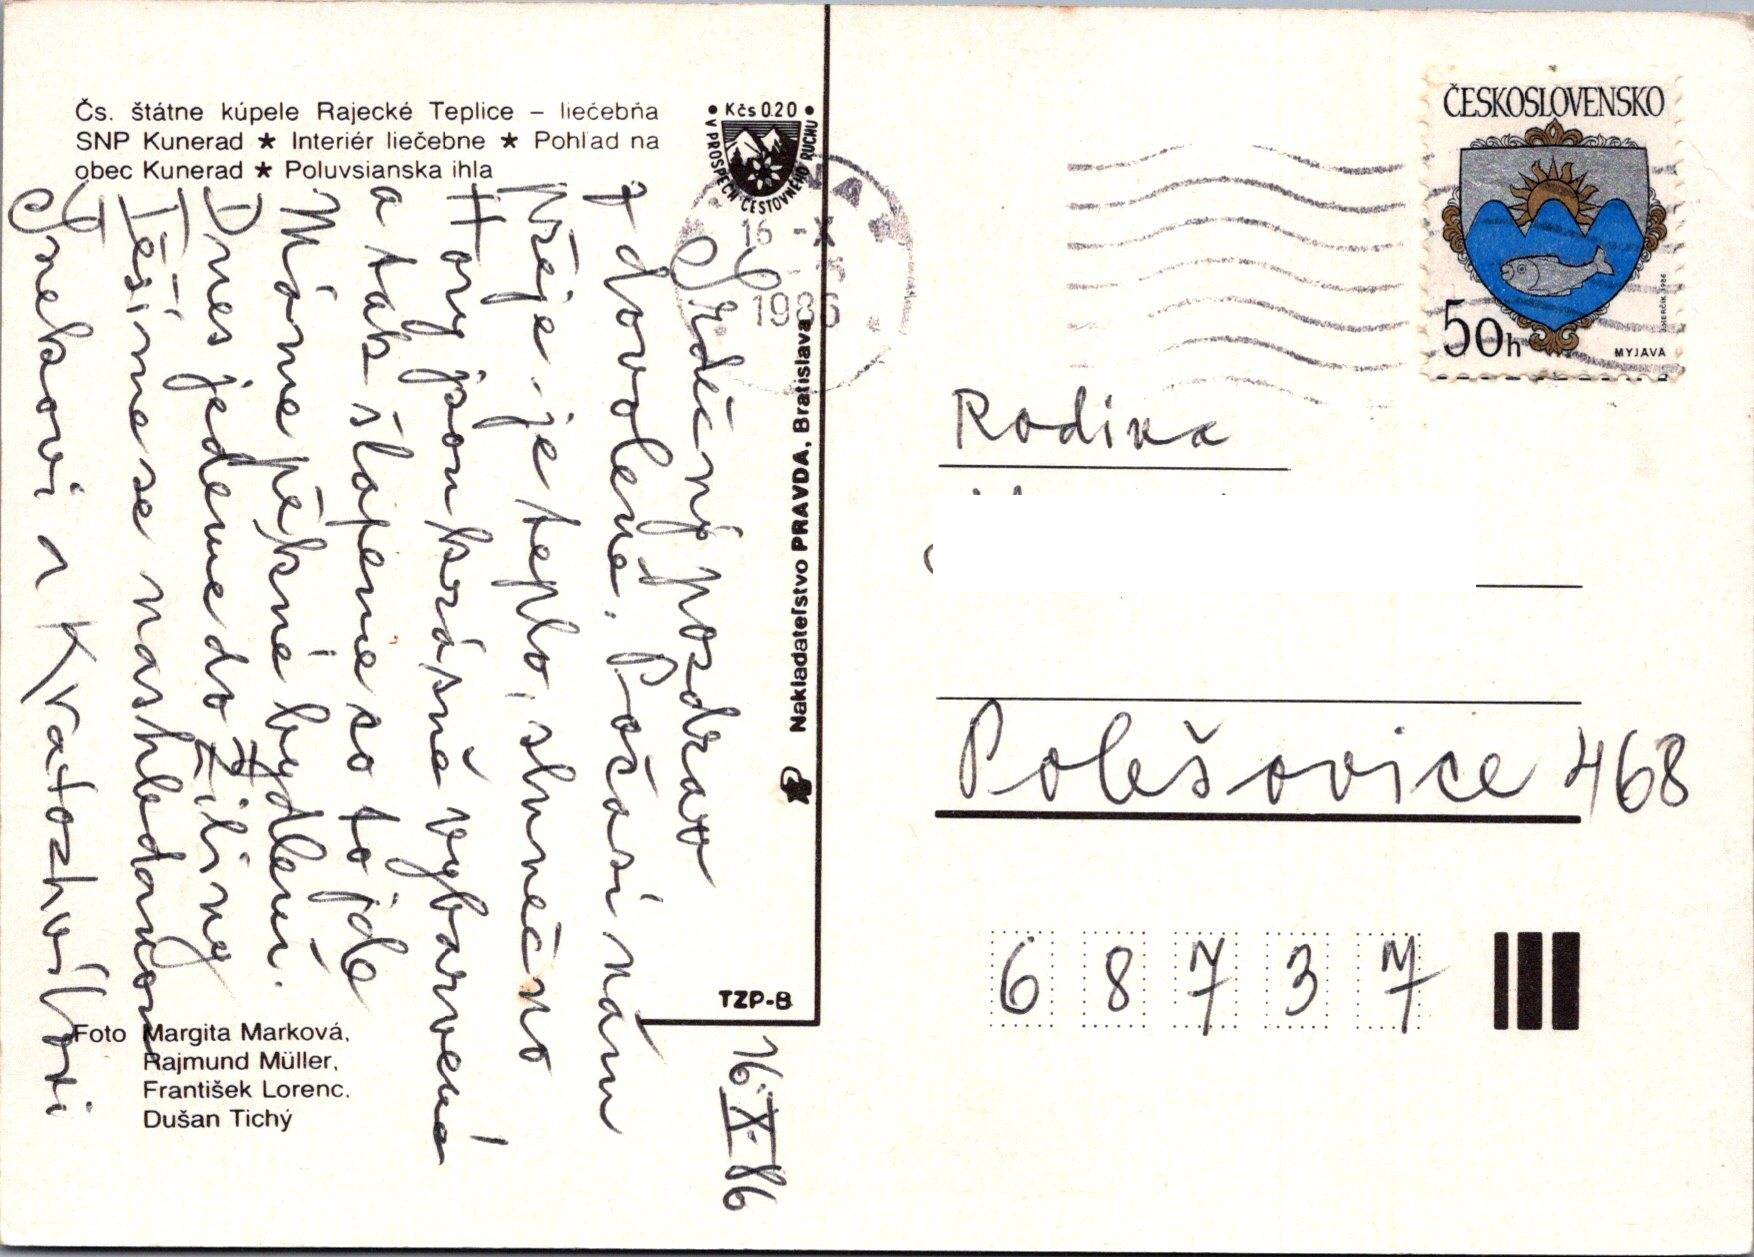 Čs. štátne kúpele Rajecké Teplice – liečebňa
SNP Kunerad ★ Interiér liečebne ★ Pohľad na
obec Kunerad ★ Poluvsianska ihla
• Kčs 0.20 •
V PROSPECH CESTOVNÉHO RUCHU
16 - X
1986
16. X. 86
Srdečný pozdrav
z dovolené. Počasí nám
přeje, je teplo, slunečno
Hory jsou krásně vybarvené
a tak šlapeme so to jde
Máme pěkné bydlení.
Dnes jedeme do Žiliny
Těšíme se nashledanou
a Kratochvílovi
Foto Margita Marková,
Rajmund Müller,
František Lorenc,
Dušan Tichý
Nakladateľstvo PRAVDA, Bratislava
TZP-B
ČESKOSLOVENSKO
50h
MYJAVA
Rodina
Polešovice 468
68737